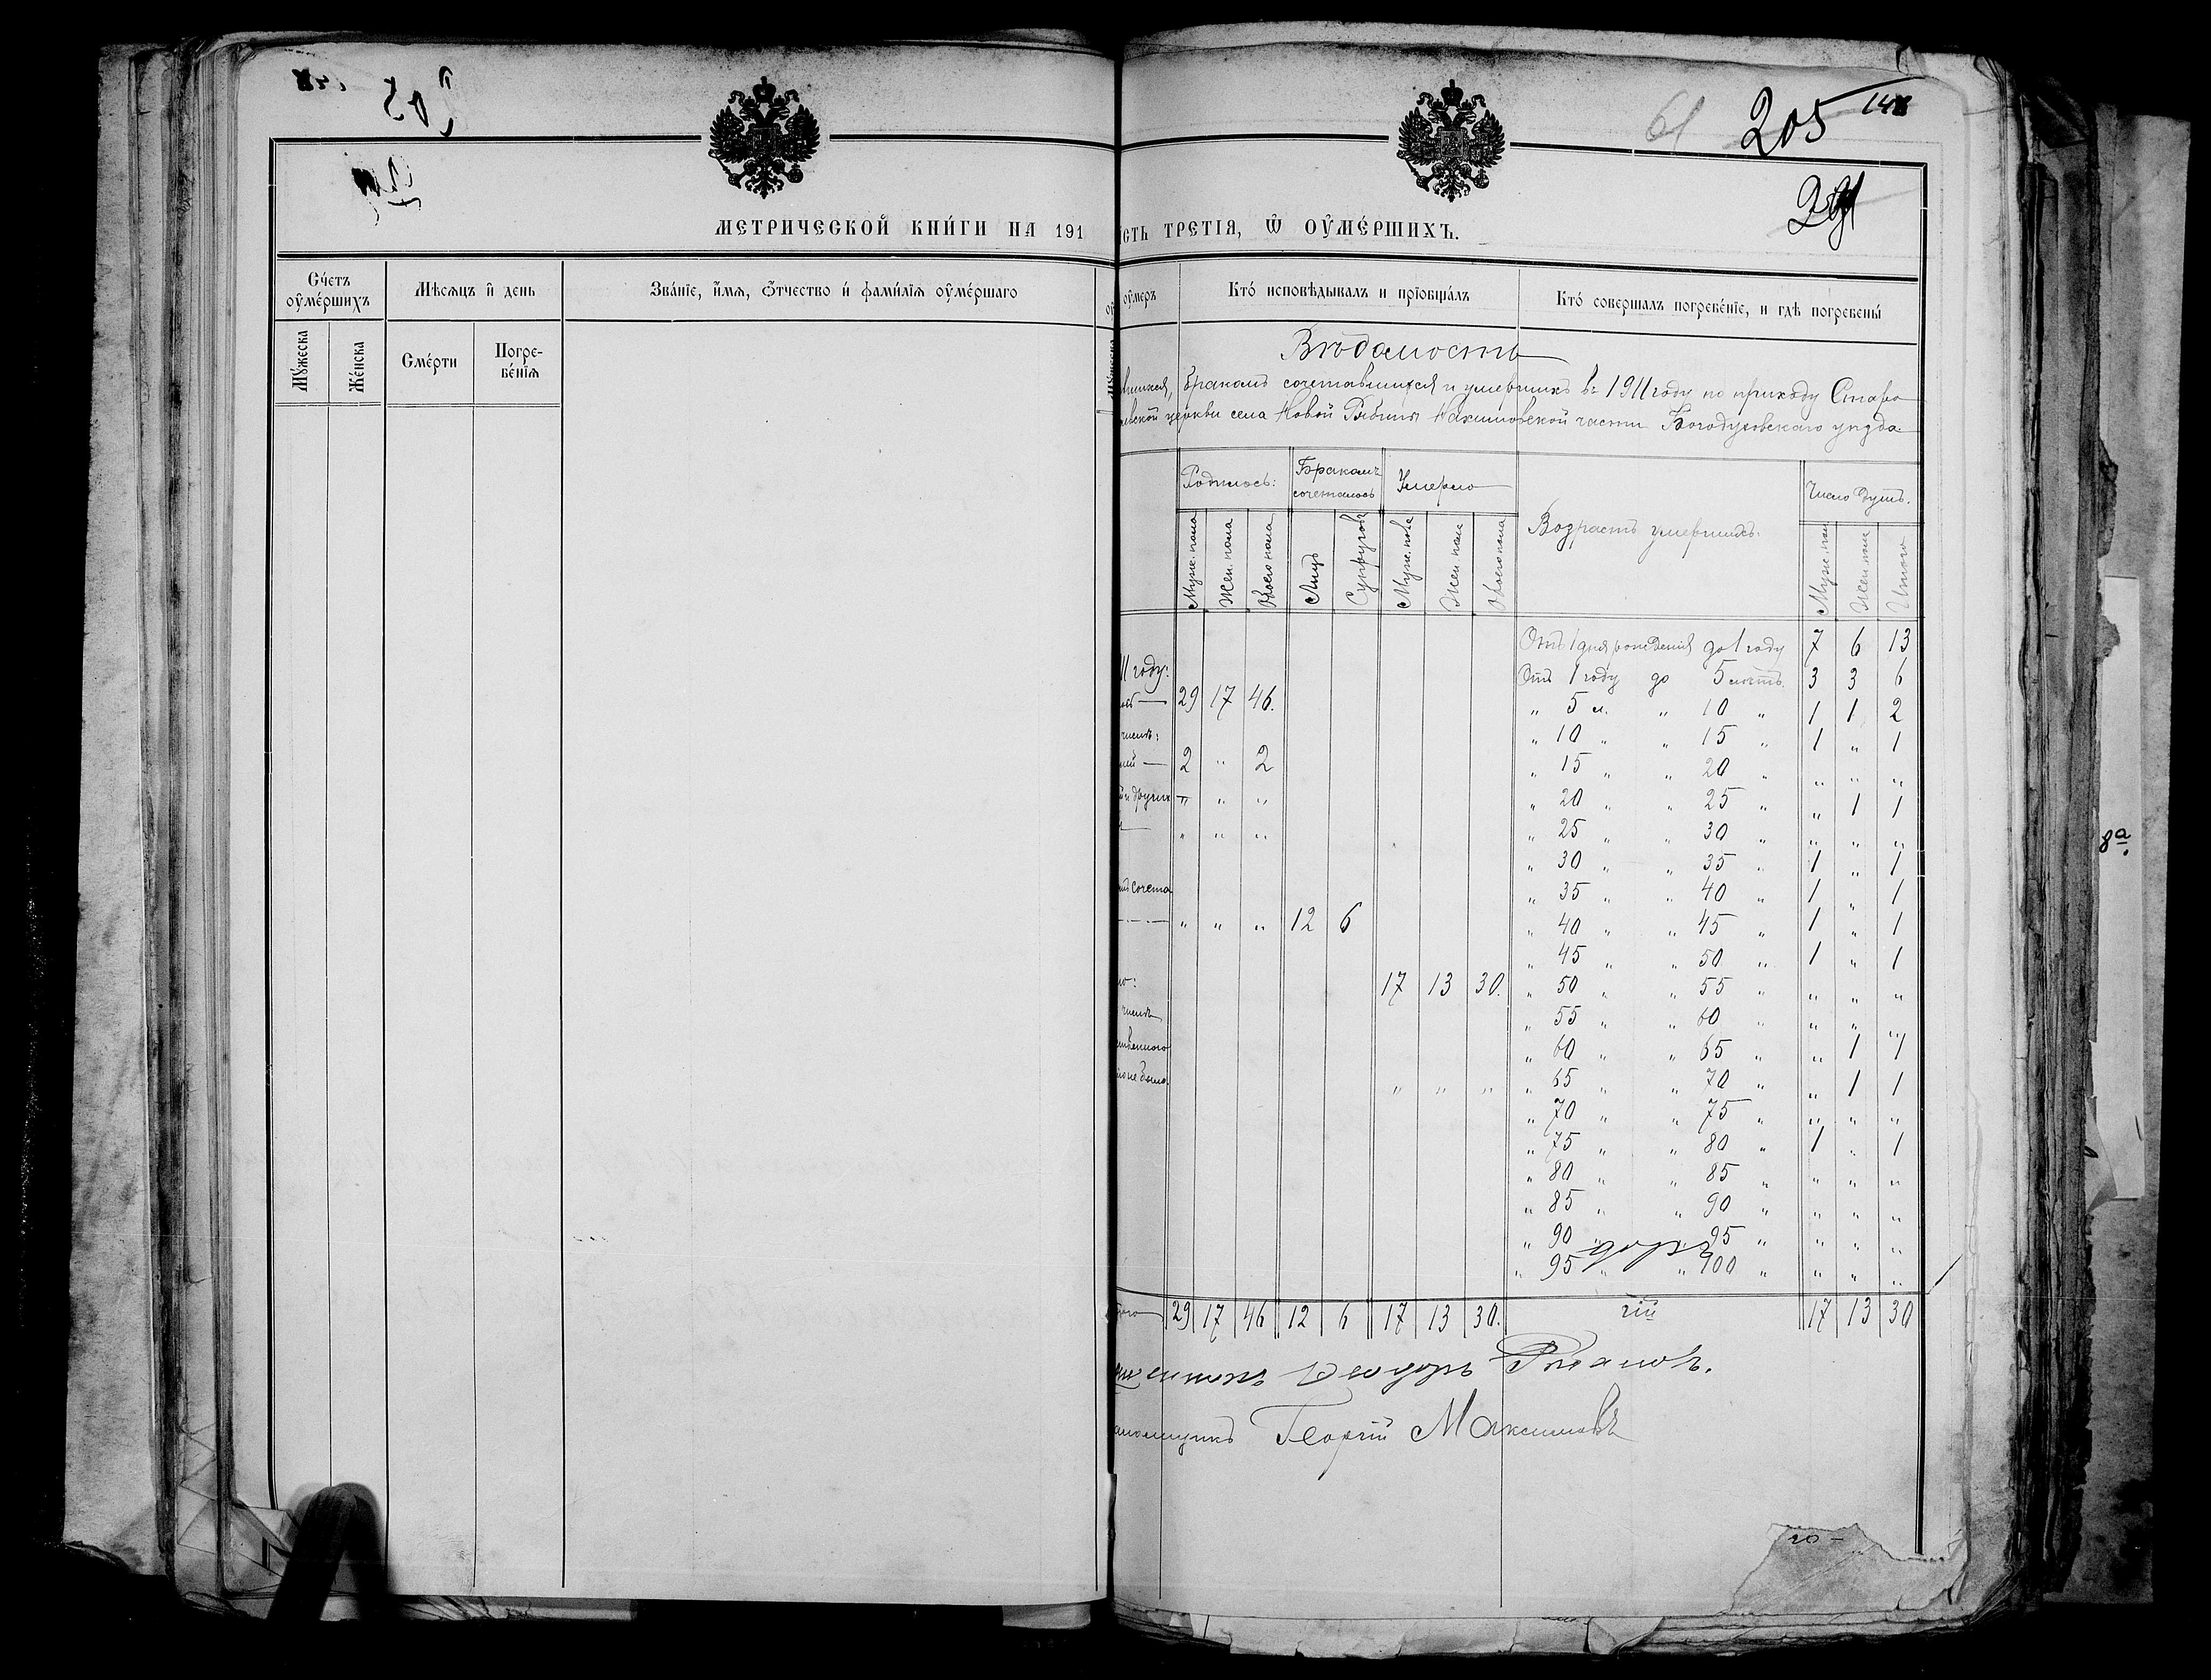 61 205 148
МЕТРИЧЕСКОЙ КНИ́ГИ НА 191
СТЬ ТРЕТІЯ, Ѿ ОУ҆МЕ́РШИХЪ.
Сче́тъ оу҆ме́ршихъ
Мѣсѧцъ и҆ день
Зва́нїе, и҆́мѧ, ѻ҆́тчество и҆ фами́лїѧ оу҆ме́ршаго
Мꙋ́жеска
Же́нска
Сме́рти
Погребе́нїѧ
оу҆меръ
Кто́ исповѣ́дывалъ и прїобща́лъ
Кто́ соверша́лъ погребе́нїе, и гдѣ погребены́
Вѣдомость
вшихся, бракомъ сочетавшихся и умершихъ въ 1911 году по приходу Старо
евской церкви села Новой Рябины Нахимовской части Богодуховскаго уѣзда.
Родилось:
Бракомъ сочеталось
Умерло
Возрастъ умершихъ.
Число душъ.
Муж. пола
Жен. пола
Обоего пола
Лицъ
Супруговъ
Муж. пола
Жен. пола
Обоего пола
Муж. пол
Жен. пола
Итого
Отъ 1 дня рожденія до 1 году 7 6 13
11 году:
Отъ 1 году до 5 лѣтъ. 3 3 6
29 17 46.
„ 5 л. „ 10 „ 1 1 2
числѣ:
„ 10 „ „ 15 „ 1 „ 1
2 „ 2
„ 15 „ „ 20 „ „ „ „
и другихъ „ „ „
„ 20 „ „ 25 „ „ 1 1
„ „ „
„ 25 „ „ 30 „ „ „ „
„ 30 „ „ 35 „ 1 „ 1
сочета
„ 35 „ „ 40 „ 1 „ 1
„ „ „ 12 6
„ 40 „ „ 45 „ 1 „ 1
„ 45 „ „ 50 „ 1 „ 1
17 13 30.
„ 50 „ „ 55 „ „ „ „
числѣ
„ 55 „ „ 60 „ „ „ „
ственного
„ 60 „ „ 65 „ „ 1 1
не было. „ „ „
„ 65 „ „ 70 „ „ 1 1
„ 70 „ „ 75 „ „ „ „
„ 75 „ „ 80 „ 1 „ 1
„ 80 „ „ 85 „ „ „ „
„ 85 „ „ 90 „ „ „ „
„ 90 „ „ 95 „ „ „ „
„ 95 „ „ 100 „ „ „ „
29 17 46 12 6 17 13 30. 17 13 30
щенникъ Ѳеодоръ
аломщикъ Георгій Максимовъ
8а.